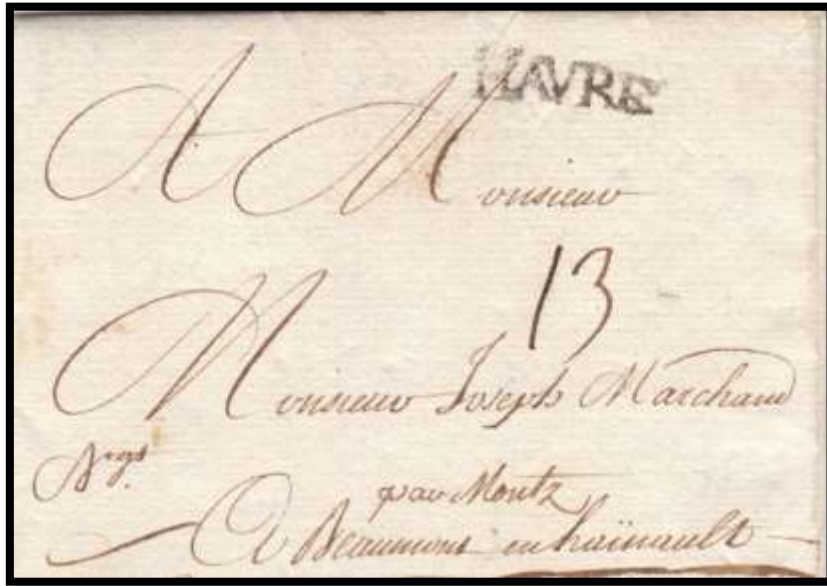 HAVRE
A Monsieur
13
Monsieur Joseph Marchand
par Montz
A Beaumont en hainault